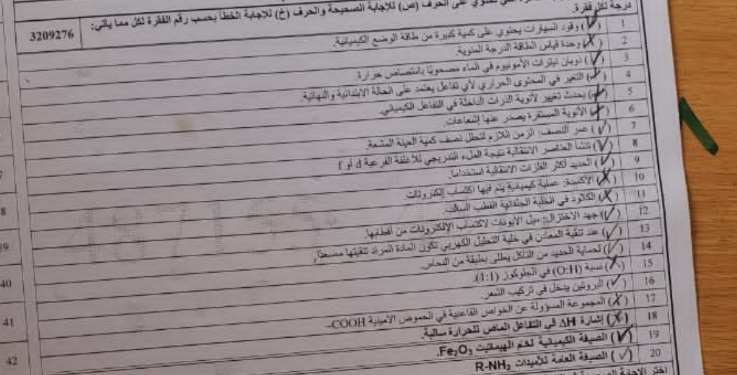 على الحرف (ص) للإجابة الصحيحة والحرف (خ) للإجابة الخطأ بحسب رقم الفقرة لكل مما يأتي:
درجة لكل فقرة.
3209276
1 (✓) وقود السيارات يحتوي على كمية كبيرة من طاقة الوضع الكيميائية.
2 (✗) وحدة قياس الطاقة الدرجة المئوية.
3 (✓) ذوبان نيترات الأمونيوم في الماء مصحوبًا بامتصاص حرارة.
4 التغير في المحتوى الحراري لأي تفاعل يعتمد على الحالة الابتدائية والنهائية.
5 يحدث تغيير لأنوية الذرات الداخلة في التفاعل الكيميائي.
6 الأنوية المستقرة يصدر عنها إشعاعات.
7 (✓) عمر النصف: الزمن اللازم لتحلل نصف كمية العينة المشعة.
8 (✓) تنشأ العناصر الانتقالية نتيجة الملء التدريجي للأغلفة الفرعية d أو f
9 (✓) الحديد أكثر الفلزات الانتقالية استخدامًا.
10 (✗) الأكسدة: عملية كيميائية يتم فيها اكتساب إلكترونات.
11 (✗) الكاثود في الخلية الجلفانية القطب السالب.
12 (✓) جهد الاختزال: ميل الأيونات لاكتساب الإلكترونات من أقطابها.
13 (✓) عند تنقية المعادن في خلية التحليل الكهربي تكون المادة المراد تنقيتها مصعدًا.
14 (✓) لحماية الحديد من التآكل يطلى بطبقة من النحاس.
15 (✗) نسبة (O:H) في الجلوكوز (1:1).
16 (✓) البروتين يدخل في تركيب الشعر.
17 (✗) المجموعة المسؤولة عن الخواص القاعدية في الحموض الأمينية COOH–
18 (✗) إشارة ΔH في التفاعل الماص للحرارة سالبة.
19 (✓) الصيغة الكيميائية لخام الهيماتيت Fe₂O₃.
20 (✓) الصيغة العامة للأميدات R-NH₂
اختر الإجابة
8
39
40
41
42